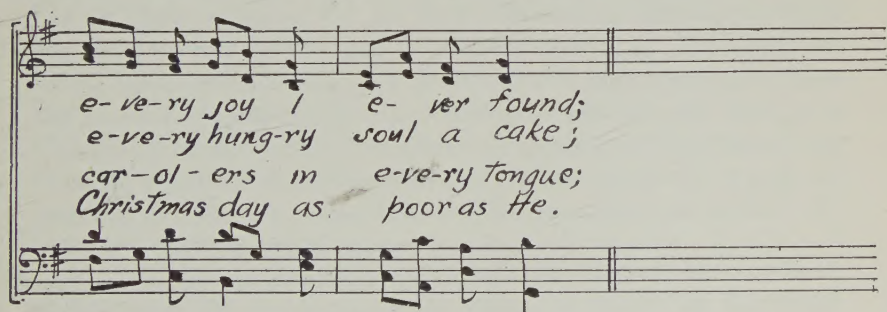 e-ve-ry joy I e-ver found;
e-ve-ry hung-ry soul a cake;
car-ol-ers in e-ve-ry Tongue;
Christmas day as poor as He.